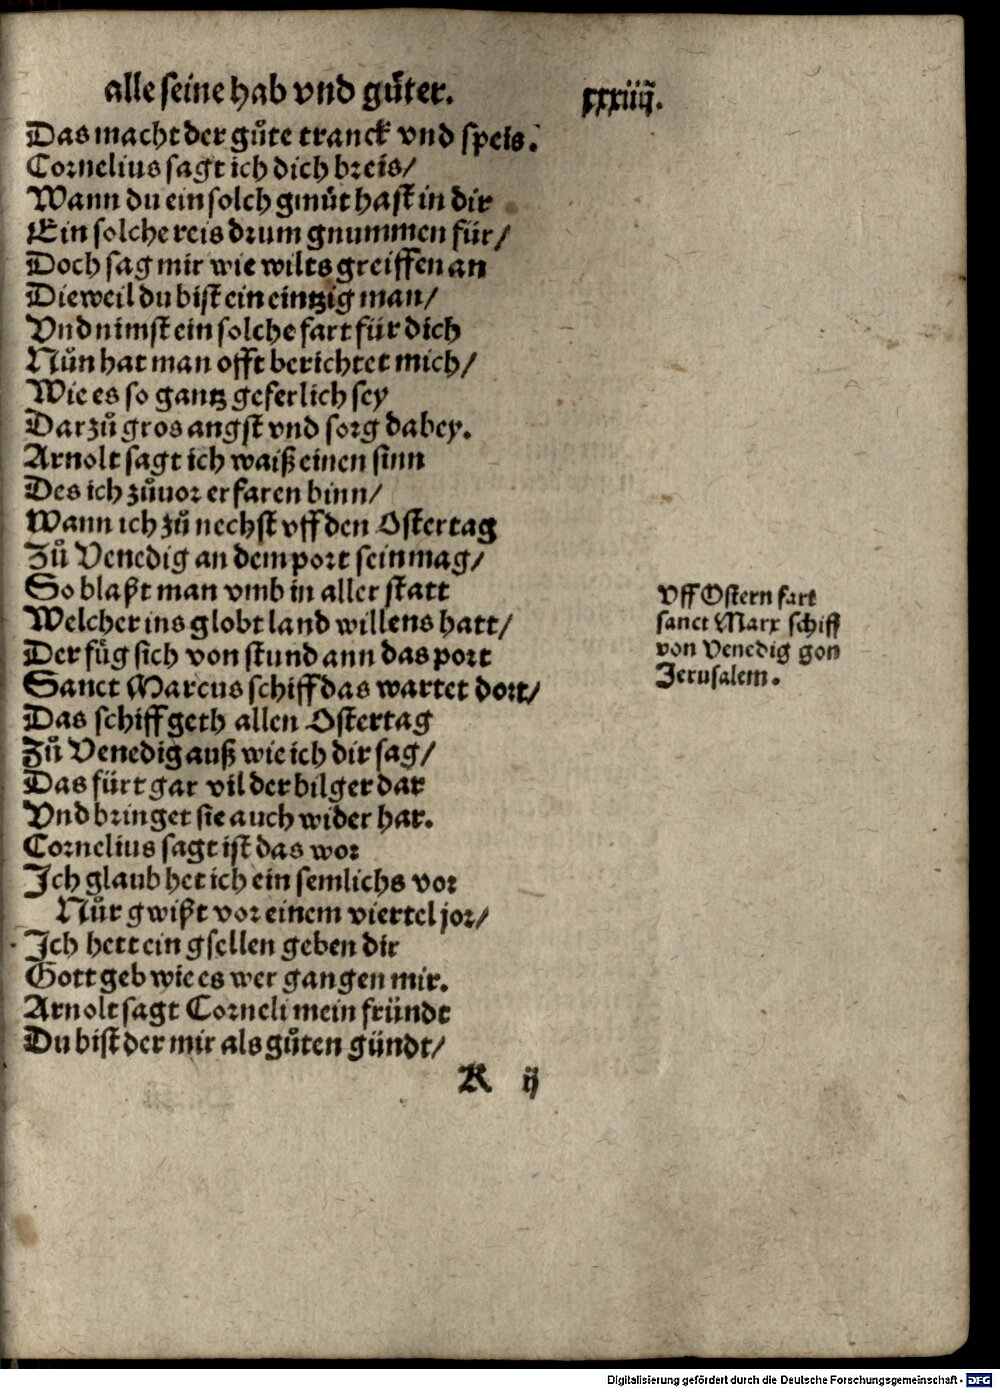 alle seine hab vnd guͤter. xxxiiij.
Das macht der guͦte tranck vnd speis.
Cornelius sagt ich dich breis/
Wann du ein solch gmuͤt hast in dir
Ein solche reis drum gnummen für/
Doch sag mir wie wilts greiffen an
Dieweil du bist ein eintzig man/
Vnd nimst ein solche fart für dich
Nuͦn hat man offt berichtet mich/
Wie es so gantz geferlich sey
Darzuͦ gros angst vnd sorg dabey.
Arnolt sagt ich waiß einen sinn
Des ich zuͦuor erfaren binn/
Wann ich zuͦ nechst vff den Ostertag
Zuͦ Venedig an dem port sein mag/
So blaßt man vmb in aller statt
Welcher ins globt land willens hatt/
Der fuͤg sich von stund ann das port
Sanct Marcus schiff das wartet dort/
Das schiff geth allen Ostertag
Zuͦ Venedig auß wie ich dir sag/
Das fürt gar vil der bilger dar
Vnd bringet sie auch wider har.
Cornelius sagt ist das wor
Ich glaub het ich ein semlichs vor
Nuͦr gwißt vor einem viertel jor/
Ich hett ein gsellen geben dir
Gott geb wie es wer gangen mir.
Arnolt sagt Corneli mein fründt
Du bist der mir als guͦten gündt/
K ij
Vff Ostern fart
sanct Marx schiff
von Venedig gon
Jerusalem.
Digitalisierung gefördert durch die Deutsche Forschungsgemeinschaft - DFG